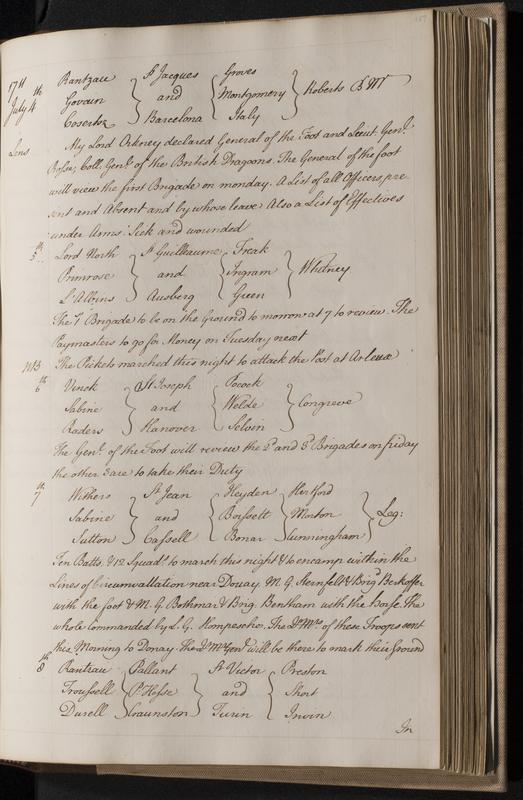 157
1711 July 4th Rantzau } St Jacques { Groves } Roberts B Mr
Govain } and { Montgomery
Coserts } Barcelona { Italy
Lens My Lord Orkney declared General of the Foot and Lieut. Genl.
Rosse, Coll. Genl. of the British Dragoons. The General of the foot
will view the first Brigade on monday. A List of all Officers pre-
sent and Absent and by whose leave. Also a List of Effectives
under Arms. Sick and wounded
5th Lord North } St Guilleaume { Freak } Whitney
Primrose } and { Ingram
St Albins } Ausberg { Green
The 1st Brigade to be on the Ground to morrow at 7 to review. The
Paymasters to go for Money on Tuesday next
NB The Pickets marched this night to attack the Post at Arleux
6th Vinck } St Joseph { Pocock } Congreve
Sabine } and { Welde
Raders } Hanover { Selvin
The Genl. of the Foot will review the 2d and 3d Brigades on friday
the other 3 are to take their Duty
7th Withers } St Jean { Heyden { Hertford } Leg:
Sabine } and { Boissett { Morton
Sutton } Cassell { Bonar { Cunningham
Ten Batts. & 12 Squads. to march this night & to encamp within the
Lines of Circumvallation near Douay. M. G. Steinfelt & Brig. Berkoffer
with the foot & M. G. Bothmar & Brig. Bentham with the horse. The
whole commanded by L. G. Hompesche. The Q Mrs. of these Troops sent
this Morning to Douay. The Q Mr Genl. will be there to mark their Ground
8th Rantzau { Pallant } St Victor { Preston
Troussell { P. Hesse } and { Short
Durell { Craunston } Turin { Irwin
In